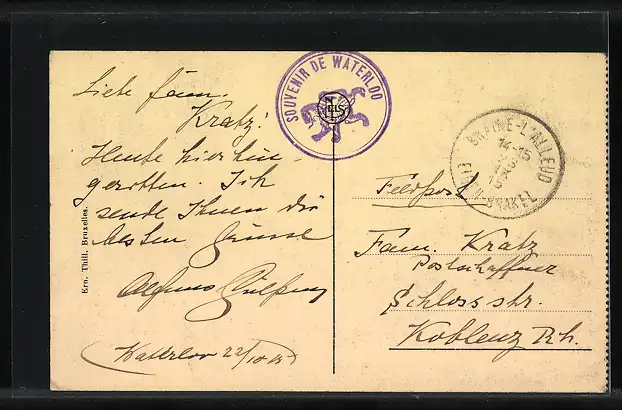 Liebe Fam.
Kratz!
Heute hierhin
gerotten. Ich
sende Ihnen die
besten Grüsse
Waterloo 22/10 15
Ern. Thill, Bruxelles.
SOUVENIR DE WATERLOO
BRAINE-L'ALLEUD
14-15
23
15
EIGEN-BRAKEL
Feldpost
Fam. Kratz
Postschaffner
Schlossstr.
Koblenz Rh.